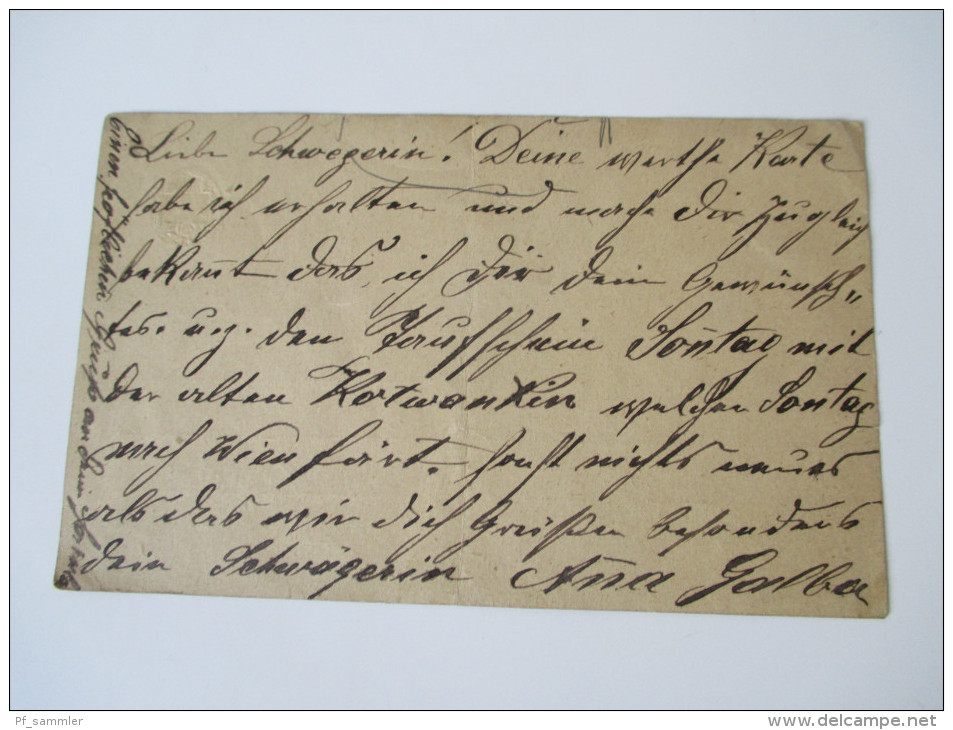 Liebe Schwegerin! Deine werthe Karte
habe ich erhalten und mache Dir Zugleich
bekannt das, ich Dir dein Gewünsch„
tes. u. z. den Taufschein Sontag mit
der alten Kotwankin welche Sontag
nach Wien färt. sonst nichts neues
als das wir dich Grüßen besonders
dein Schwägerin Anna Galba
einen herzlichen Gruß an dein
Pf_sammler
www.delcampe.net